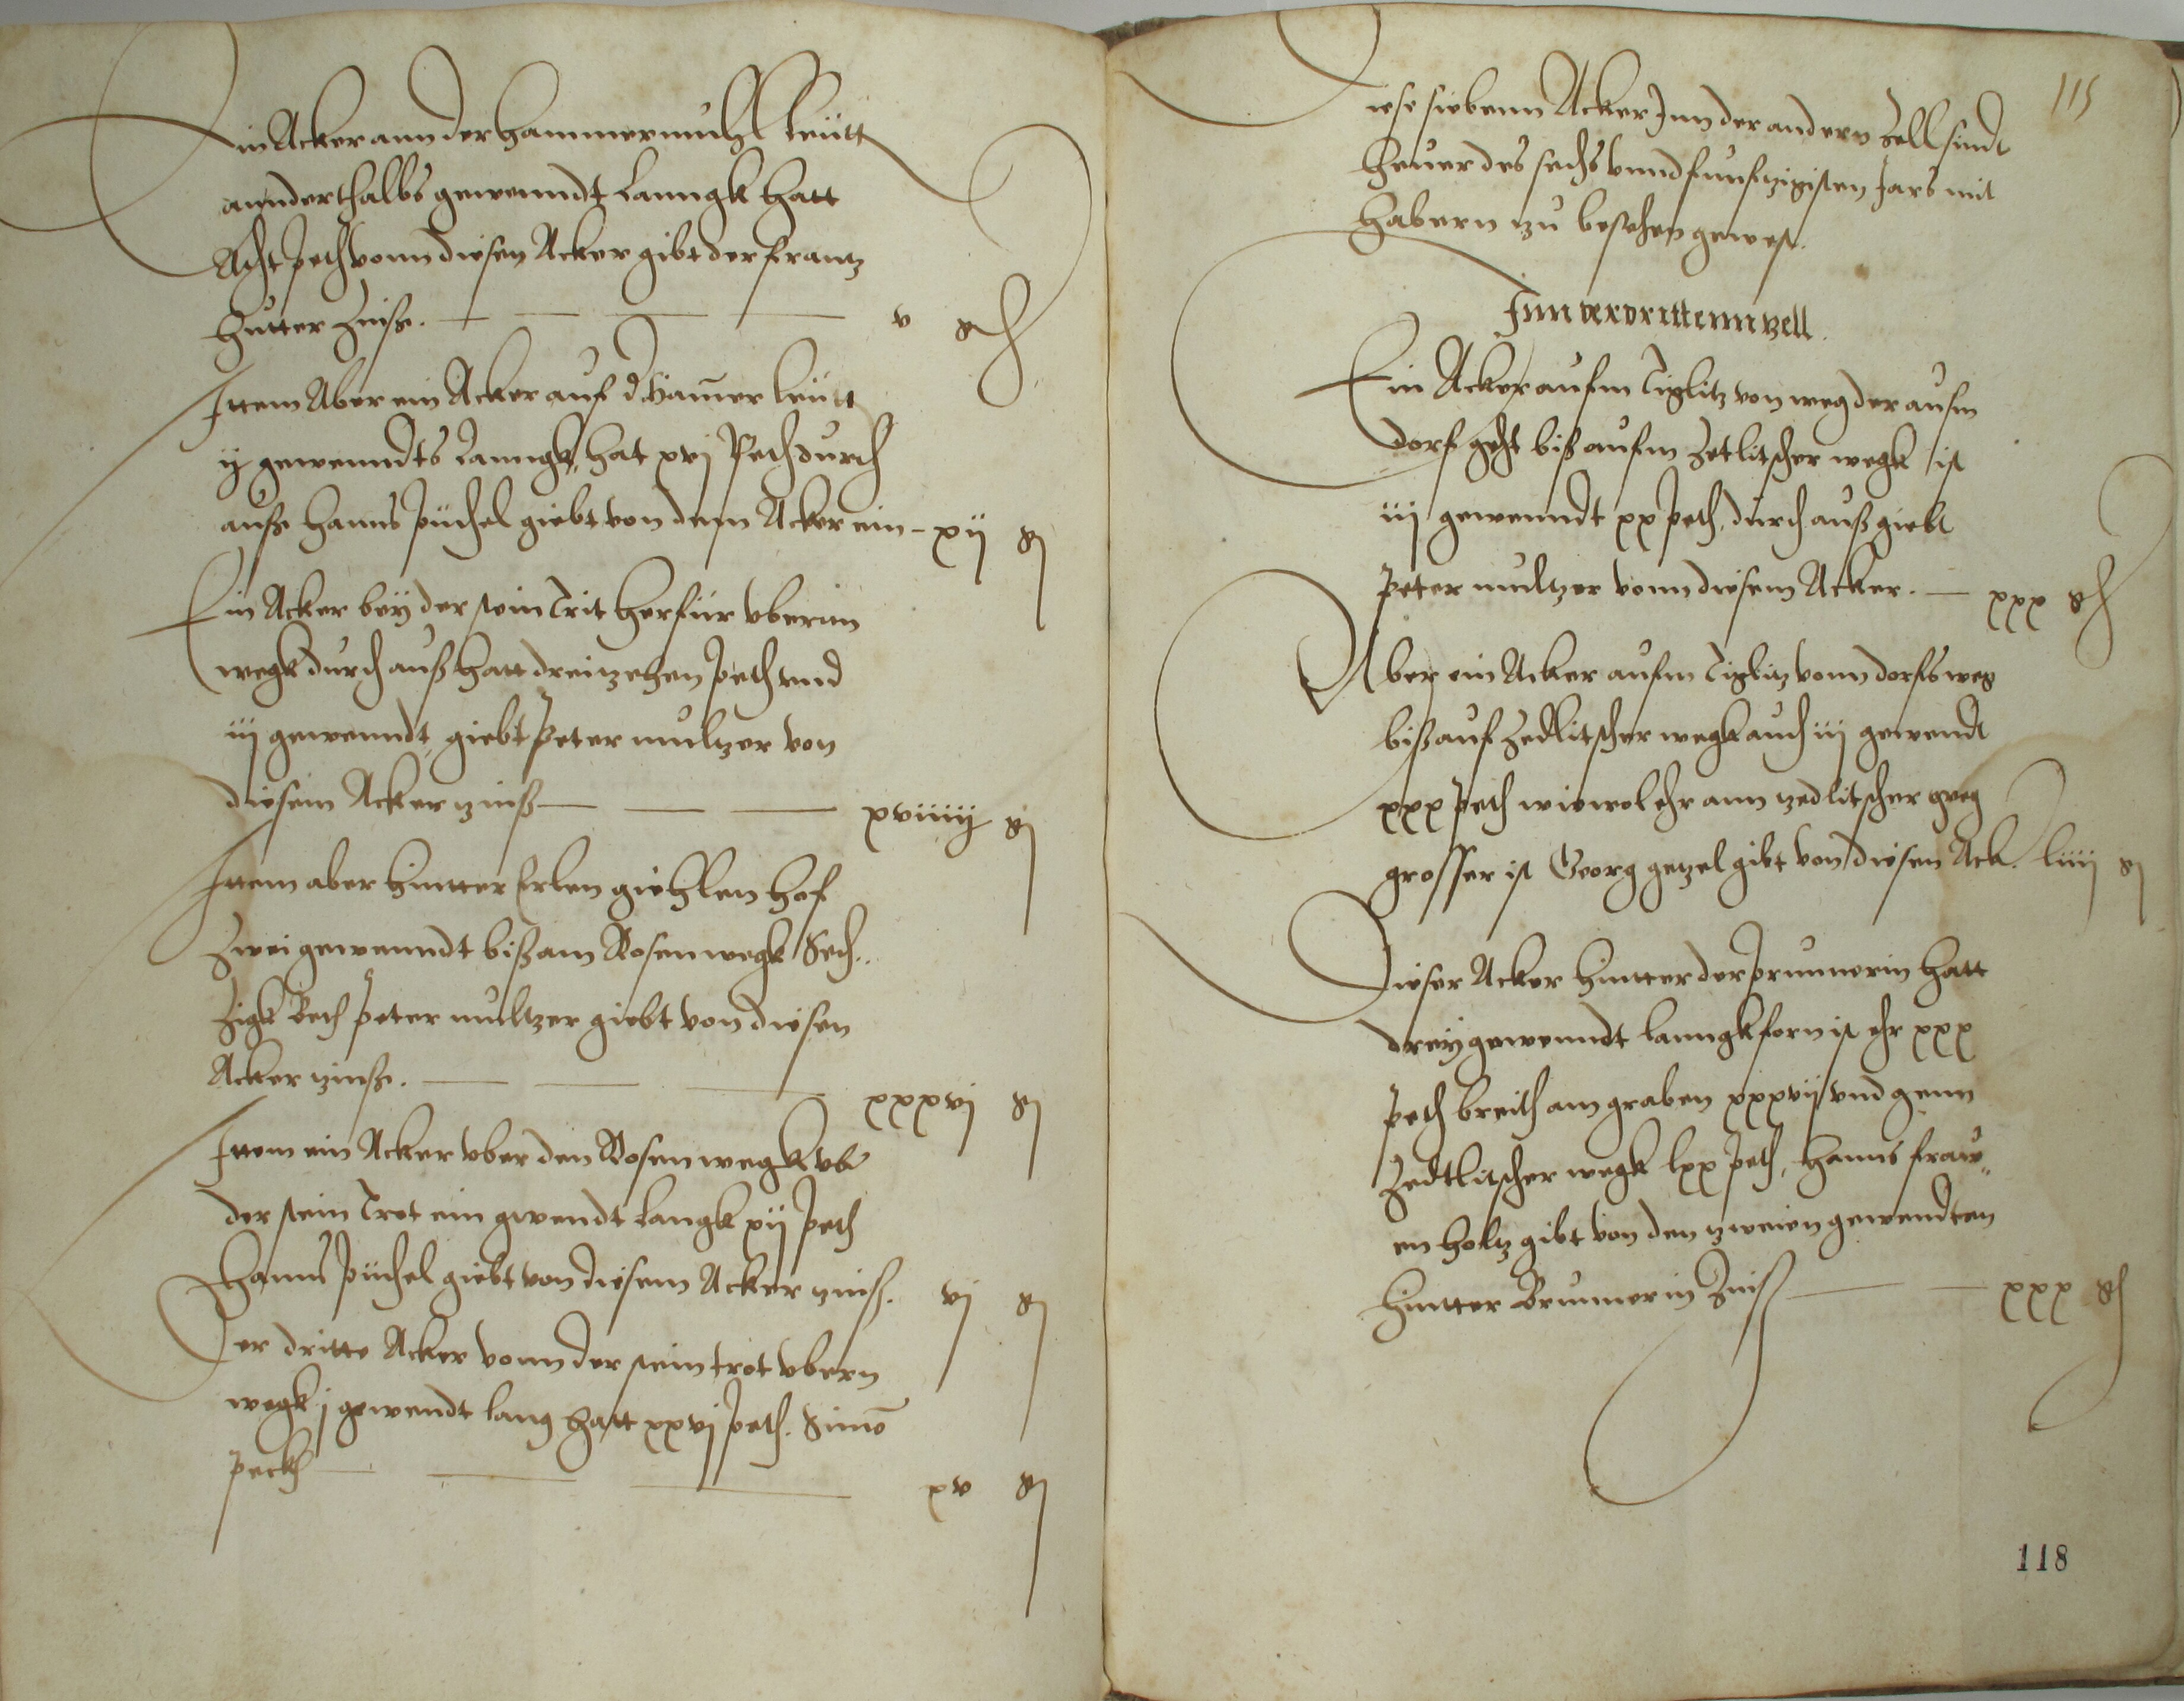 Ein Acker ann der Hammermuhl leutt
annderthalbs gewenndt lanngk hatt
Acht peth vonn diesen Acker gibt der Frantz
Hutter Zinß. v ₰
Ittem Aber ein Acker auf d Ham̄er leutt
ij gewenndts lanngk, hat xvj Peth durch
auß Hanns püchel giebt von dem Acker ein - xij ₰
Ein Acker bey der stein Trit herfür vberm
wegk durch auß hatt dreizehen peth vnd
iij gewenndt, giebt Peter multzer von
diesem Acker zinß xviiij ₰
Ittem aber hintter Erlen hof
Zwei gewenndt biß am Rosenwegk Sech..
Zigk Beth Peter multzer giebt von diesen
Acker zinße. xxxvj ₰
Ittem ein Acker vber den Rosenwegk vb
der stein Trot ein gwendt langk xij peth
Hanns püchel giebt von diesem Acker zinß. vj ₰
Der dritte Acker vonn der stein trot vbern
wegk j gewendt lang hatt xxvj peth. Simō
peckh xv ₰
115
iese siebenn Acker Inn der andern Zell sindt
Heuer des sechs vnnd funfzigisten Jars mit
Habern zu besehen gewest.
Inn der drittenn zell.
Ein Acker aufm Tiglitz von weg der aufm
dorf geht biß aufm Zetlitscher wegk ist
iij gewenndt xx peth, durch auß giebt
Peter multzer vonn diesem Acker. xxx ₰
Aber ein Acker aufm Tiglitz vonn dorfsweg
biß auf Zedlitscher wegk auch iij gewendt
xxx peth wiewol ehr ann zedlitscher weg
grosser ist Georg getzel gibt von diesen Ack. liiij ₰
Dieser Acker hintter der prunnerin hatt
drey gewenndt lanngk forn ist ehr xxx
peth breith am graben xxxvij vnd genn
Zedtlitscher wegk lxx peth, Hanns fraw„
en holtz gibt von den zweien gewendten
hintter Brunnerin Zinß xxx ₰
118